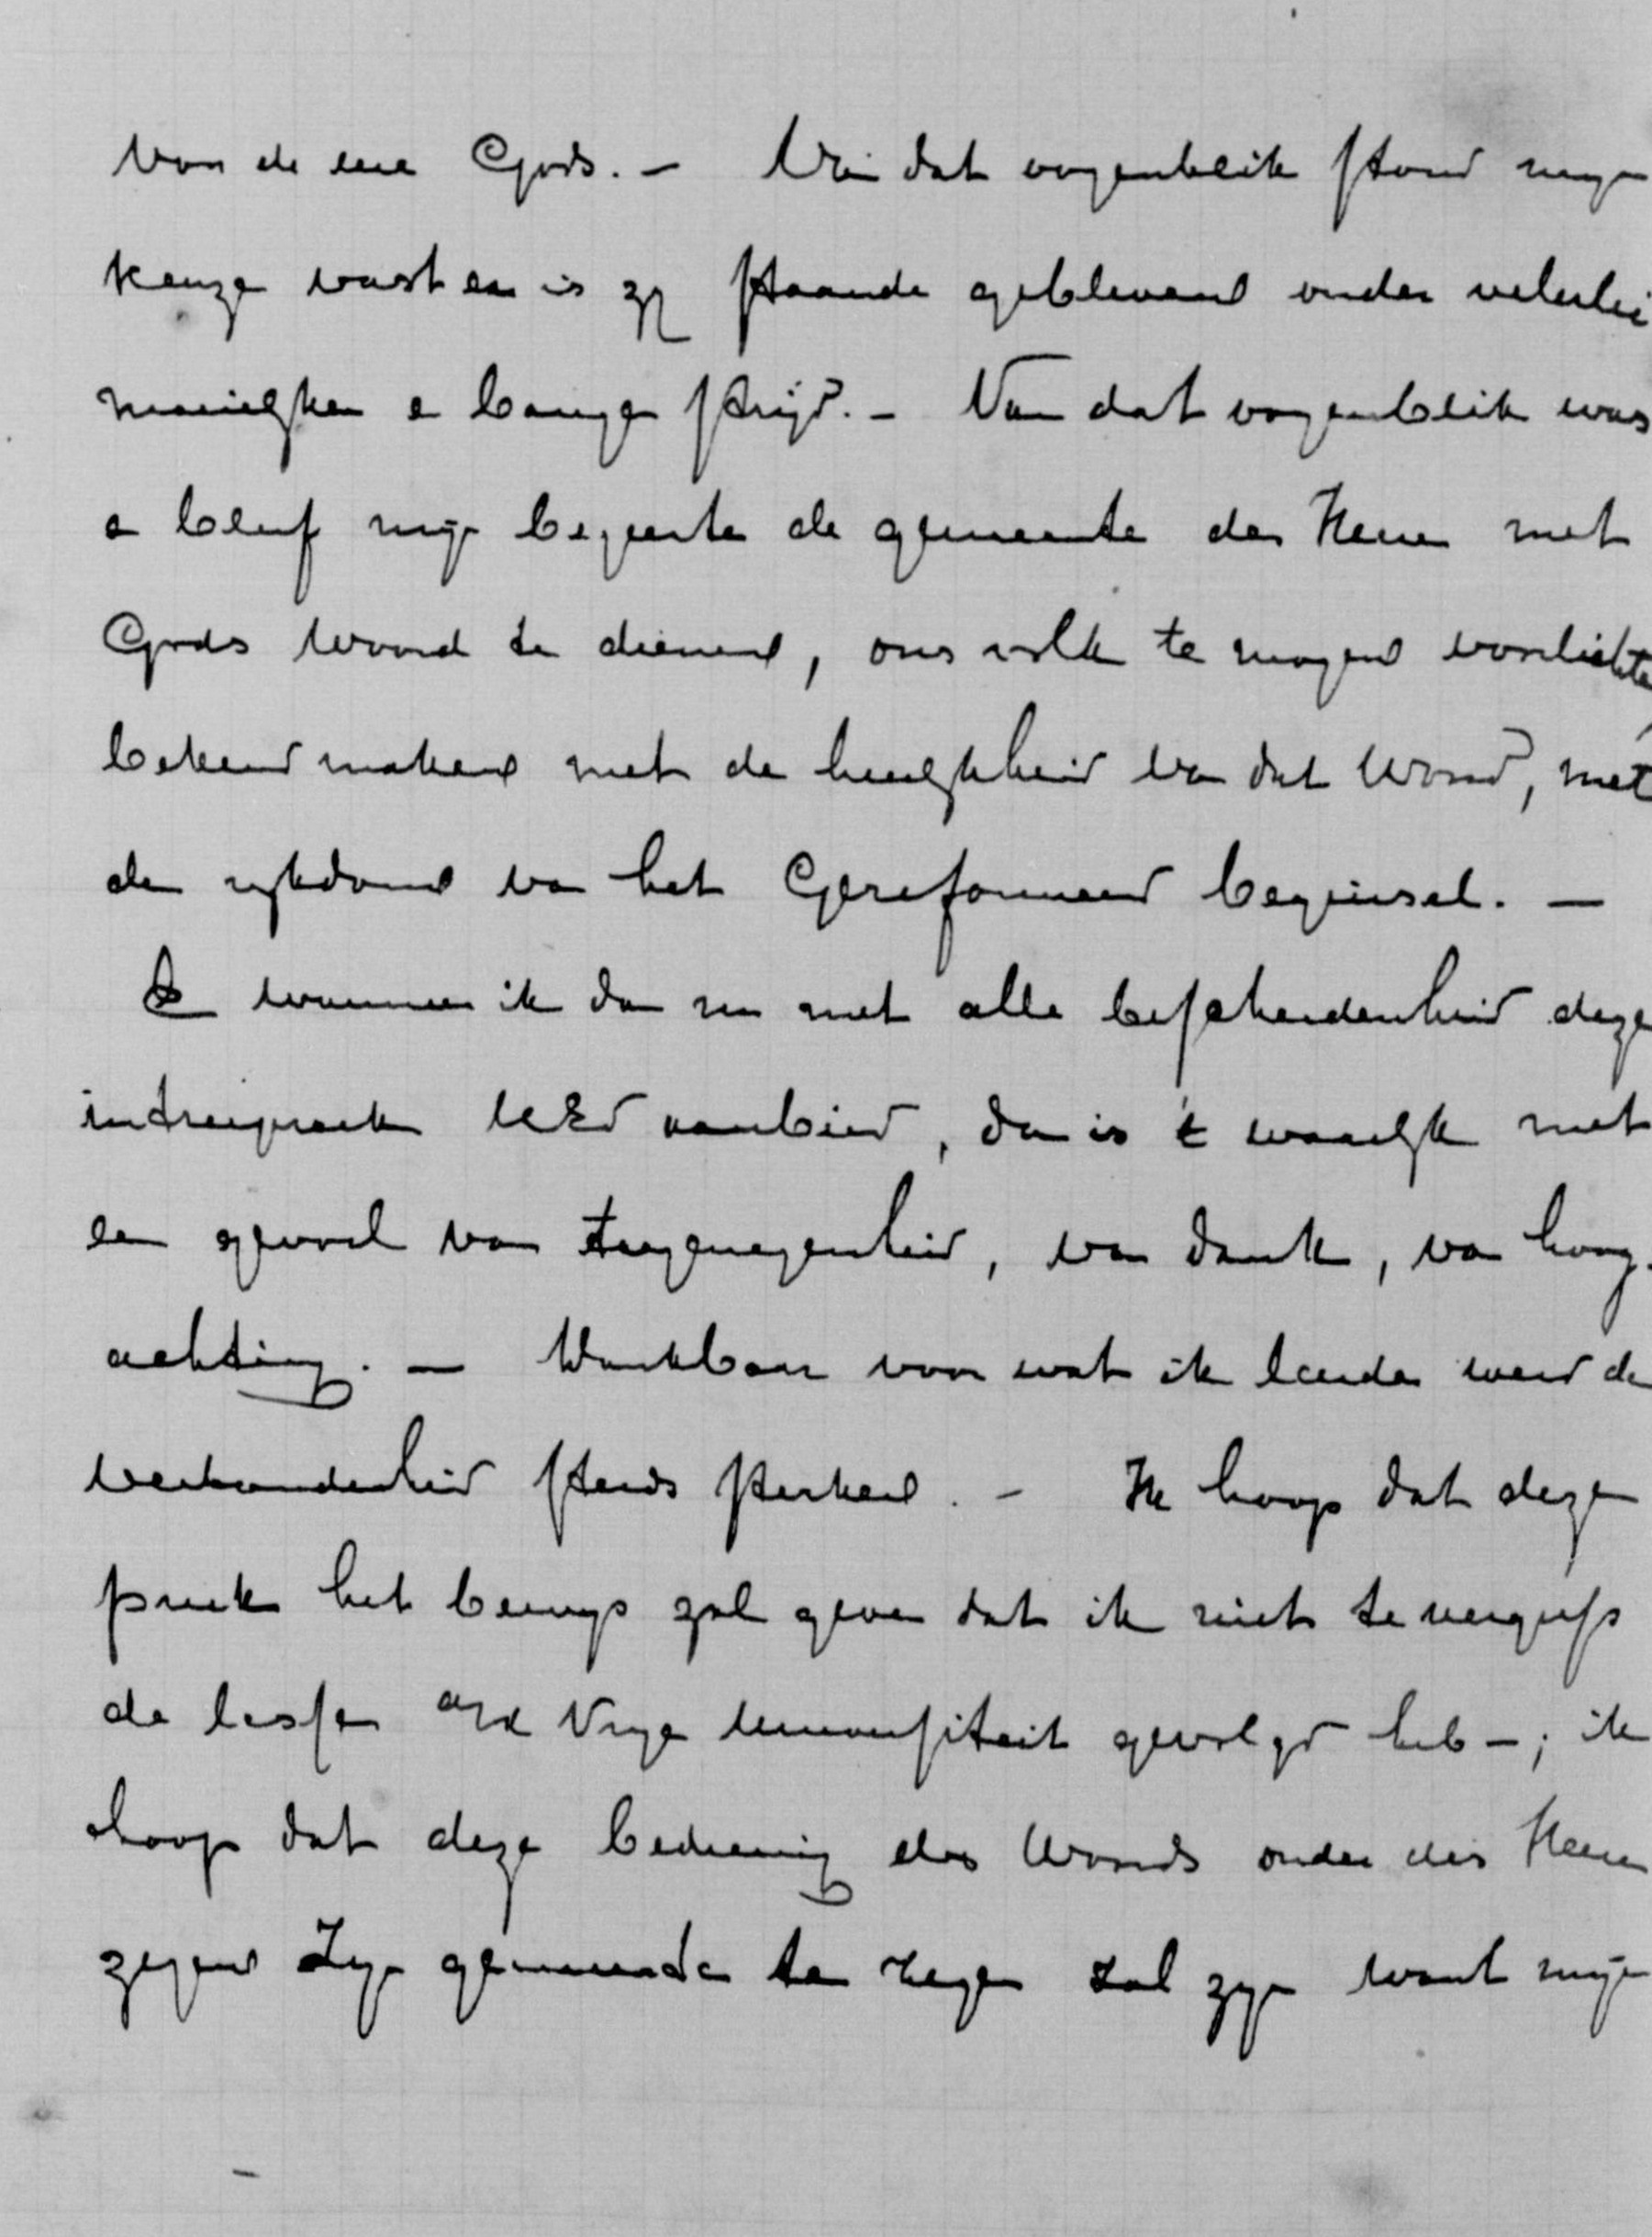 voor de eere Gods. — Van dat oogenblik stond mijn
keuze vast en is zij staande gebleven onder velerlei
moeielijken en bangen strijd. — Van dat oogenblik was
en bleef mijn begeerte de gemeente des Heeren met
Gods woord te dienen, ons volk te mogen voorlichten
bekend maken met de heerlijkheid van dat Woord, met
den rijkdom van het Gereformeerd beginsel. —
En wanneer ik dan nu met alle bescheidenheid deze
intreepreek UEd aanbied, dan is 't waarlijk met
een gevoel van toegenegenheid, van dank, van hoog-
achting. — Dankbaar voor wat ik leerde werd de
verbondenheid steeds sterker. — Ik hoop dat deze
preek het bewijs zal geven dat ik niet te vergeefs
de lessen a/d Vrije Universiteit gevolgd heb —; ik
hoop dat deze bediening des Woords onder des Heeren
zegen Zijn gemeente ten zegen zal zijn want mijn